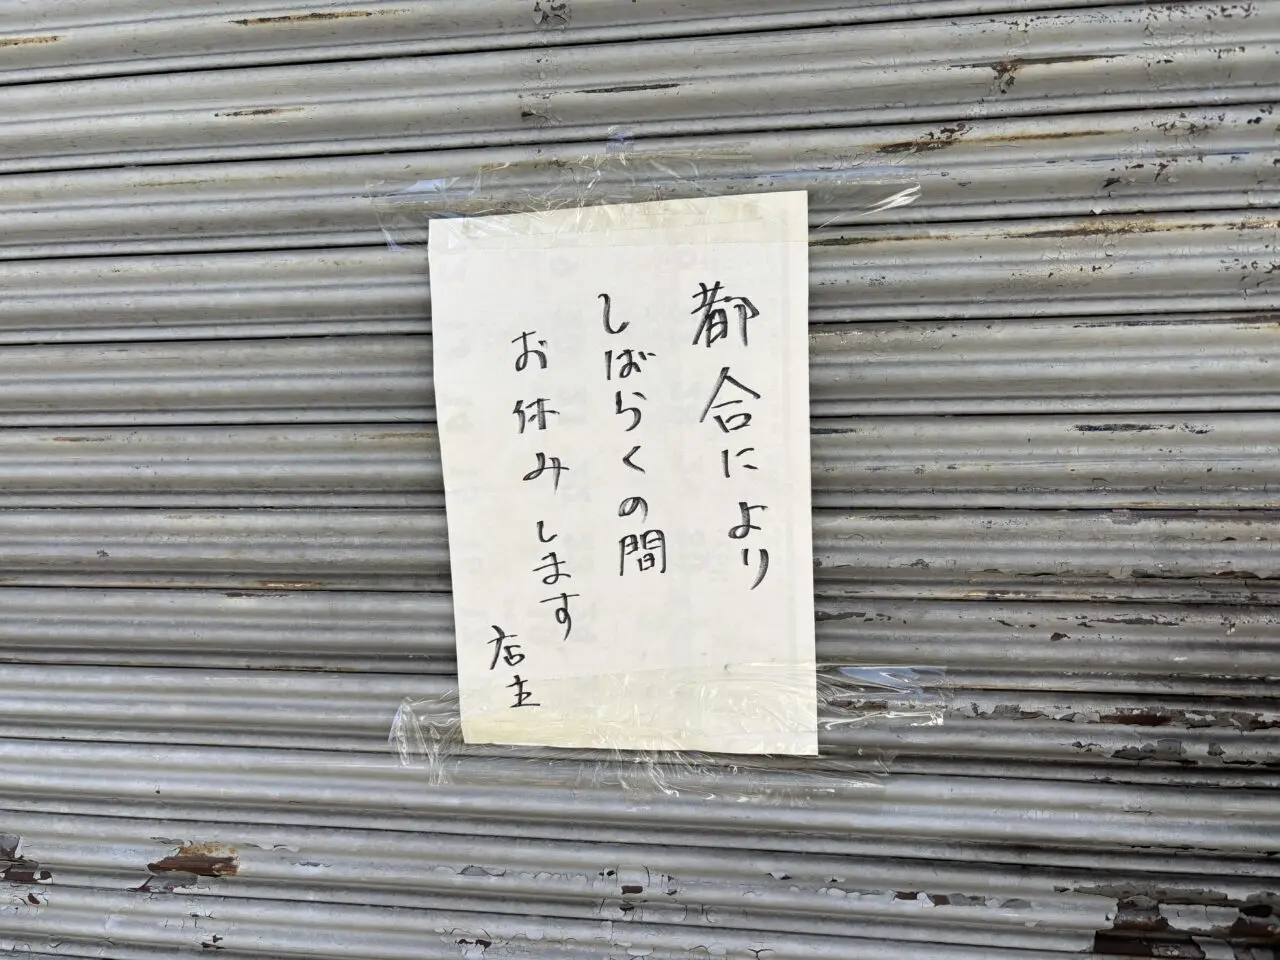 都合により
しばらくの間
お休みします
店主